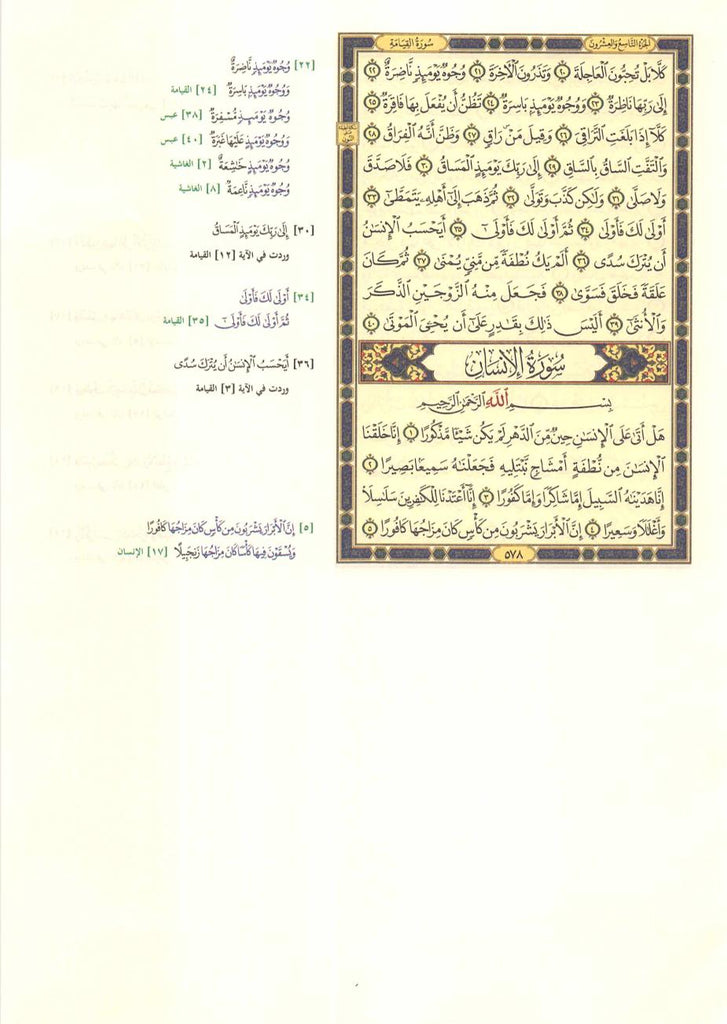 الجزء التاسع والعشرون
سورة القيامة
كَلَّا بَلْ تُحِبُّونَ ٱلْعَاجِلَةَ ٢٠ وَتَذَرُونَ ٱلْأَخِرَةَ ٢١ وُجُوهٌ يَوْمَئِذٍ نَّاضِرَةٌ ٢٢
إِلَىٰ رَبِّهَا نَاظِرَةٌ ٢٣ وَوُجُوهٌ يَوْمَئِذٍۭ بَاسِرَةٌ ٢٤ تَظُنُّ أَن يُفْعَلَ بِهَا فَاقِرَةٌ ٢٥
كَلَّآ إِذَا بَلَغَتِ ٱلتَّرَاقِىَ ٢٦ وَقِيلَ مَنْ رَاقٍ ٢٧ وَظَنَّ أَنَّهُ ٱلْفِرَاقُ ٢٨
وَٱلْتَفَّتِ ٱلسَّاقُ بِٱلسَّاقِ ٢٩ إِلَىٰ رَبِّكَ يَوْمَئِذٍ ٱلْمَسَاقُ ٣٠ فَلَا صَدَّقَ
وَلَا صَلَّىٰ ٣١ وَلَٰكِن كَذَّبَ وَتَوَلَّىٰ ٣٢ ثُمَّ ذَهَبَ إِلَىٰٓ أَهْلِهِۦ يَتَمَطَّىٰٓ ٣٣
أَوْلَىٰ لَكَ فَأَوْلَىٰ ٣٤ ثُمَّ أَوْلَىٰ لَكَ فَأَوْلَىٰٓ ٣٥ أَيَحْسَبُ ٱلْإِنسَٰنُ
أَن يُتْرَكَ سُدًى ٣٦ أَلَمْ يَكُ نُطْفَةً مِّن مَّنِىٍّ يُمْنَىٰ ٣٧ ثُمَّ كَانَ
عَلَقَةً فَخَلَقَ فَسَوَّىٰ ٣٨ فَجَعَلَ مِنْهُ ٱلزَّوْجَيْنِ ٱلذَّكَرَ
وَٱلْأُنثَىٰٓ ٣٩ أَلَيْسَ ذَٰلِكَ بِقَٰدِرٍ عَلَىٰٓ أَن يُحْـِۧىَ ٱلْمَوْتَىٰ ٤٠
سُورَةُ الإِنسَانِ
بِسْمِ ٱللَّهِ ٱلرَّحْمَٰنِ ٱلرَّحِيمِ
هَلْ أَتَىٰ عَلَى ٱلْإِنسَٰنِ حِينٌ مِّنَ ٱلدَّهْرِ لَمْ يَكُن شَيْـًٔا مَّذْكُورًا ١ إِنَّا خَلَقْنَا
ٱلْإِنسَٰنَ مِن نُّطْفَةٍ أَمْشَاجٍ نَّبْتَلِيهِ فَجَعَلْنَٰهُ سَمِيعًۢا بَصِيرًا ٢
إِنَّا هَدَيْنَٰهُ ٱلسَّبِيلَ إِمَّا شَاكِرًا وَإِمَّا كَفُورًا ٣ إِنَّآ أَعْتَدْنَا لِلْكَٰفِرِينَ سَلَٰسِلَا۟
وَأَغْلَٰلًا وَسَعِيرًا ٤ إِنَّ ٱلْأَبْرَارَ يَشْرَبُونَ مِن كَأْسٍ كَانَ مِزَاجُهَا كَافُورًا ٥
٥٧٨
[٢٢] وُجُوهٌ يَوْمَئِذٍ نَّاضِرَةٌ
وَوُجُوهٌ يَوْمَئِذٍۭ بَاسِرَةٌ [٢٤] القيامة
وُجُوهٌ يَوْمَئِذٍ مُّسْفِرَةٌ [٣٨] عبس
وَوُجُوهٌ يَوْمَئِذٍ عَلَيْهَا غَبَرَةٌ [٤٠] عبس
وُجُوهٌ يَوْمَئِذٍ خَٰشِعَةٌ [٢] الغاشية
وُجُوهٌ يَوْمَئِذٍ نَّاعِمَةٌ [٨] الغاشية
[٣٠] إِلَىٰ رَبِّكَ يَوْمَئِذٍ ٱلْمَسَاقُ
وردت في الآية [١٢] القيامة
[٣٤] أَوْلَىٰ لَكَ فَأَوْلَىٰ
ثُمَّ أَوْلَىٰ لَكَ فَأَوْلَىٰٓ [٣٥] القيامة
[٣٦] أَيَحْسَبُ ٱلْإِنسَٰنُ أَن يُتْرَكَ سُدًى
وردت في الآية [٣] القيامة
[٥] إِنَّ ٱلْأَبْرَارَ يَشْرَبُونَ مِن كَأْسٍ كَانَ مِزَاجُهَا كَافُورًا
وَيُسْقَوْنَ فِيهَا كَأْسًا كَانَ مِزَاجُهَا زَنجَبِيلًا [١٧] الإنسان